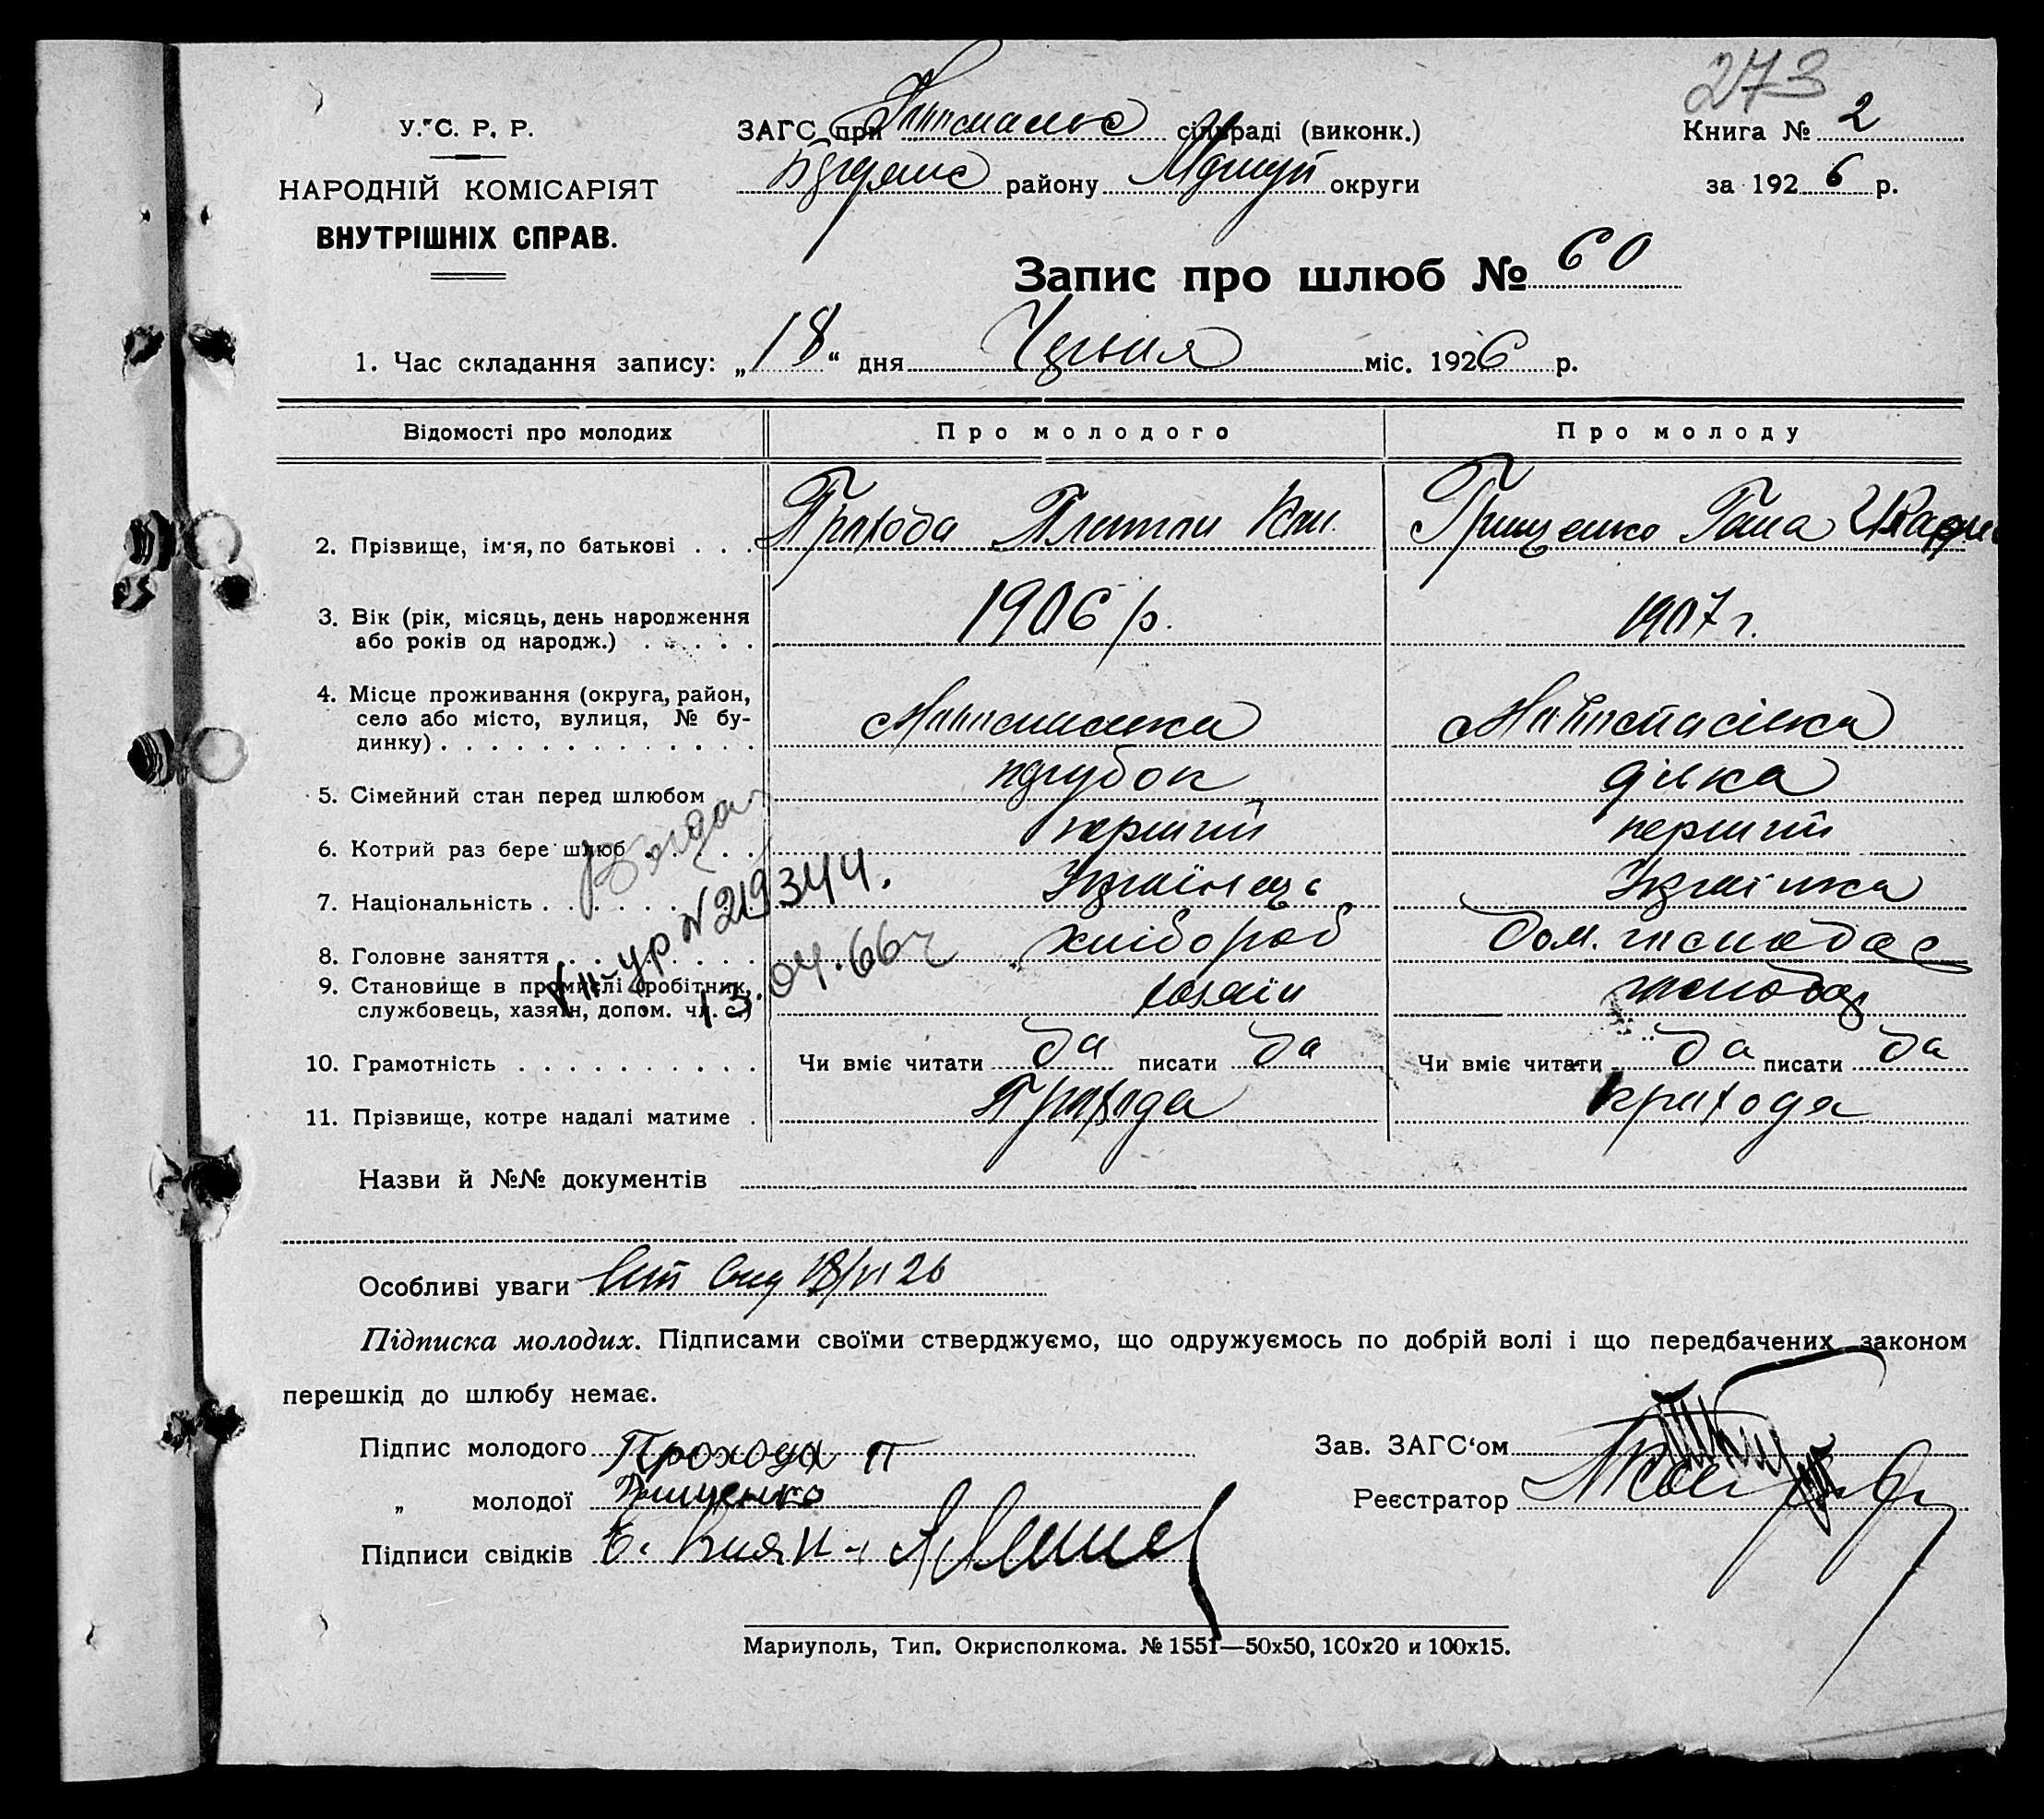 273
У. С. Р. Р.
НАРОДНІЙ КОМІСАРІЯТ
ВНУТРІШНІХ СПРАВ.
ЗАГС при сільраді (виконк.)
району округи
Книга № 2
за 1926 р.
Запис про шлюб № 60
1. Час складання запису: „18“ дня Червня міс. 1926 р.
Відомості про молодих Про молодого Про молоду
2. Прізвище, ім'я, по батькові . . . Прохода Платон Грищенко Гана
3. Вік (рік, місяць, день народження
або років од народж.) . . . . . 1906 р. 1907 г.
4. Місце проживання (округа, район,
село або місто, вулиця, № бу-
динку) . . . . . . . . . . . . .
5. Сімейний стан перед шлюбом парубок дівка
6. Котрий раз бере шлюб . . . . . перший перший
7. Національність . . . . . . . . . Українець Українка
8. Головне заняття . . . . . . . . хлібороб дом.
9. Становище в промислі (робітник,
службовець, хазяїн, допом. чл. с.) хазяїн
Видан
VIII-УР №219344.
13.04.66г
10. Грамотність . . . . . . . . . . Чи вміє читати да писати да Чи вміє читати да писати да
11. Прізвище, котре надалі матиме . Прохода Прохода
Назви й №№ документів
Особливі уваги 18/VI 26
Підписка молодих. Підписами своїми стверджуємо, що одружуємось по добрій волі і що передбачених законом
перешкід до шлюбу немає.
Підпис молодого Прохода П
Зав. ЗАГС‘ом
„ молодої Грищенко
Реєстратор
Підписи свідків
Мариуполь, Тип. Окрисполкома. № 1551—50х50, 100х20 и 100х15.